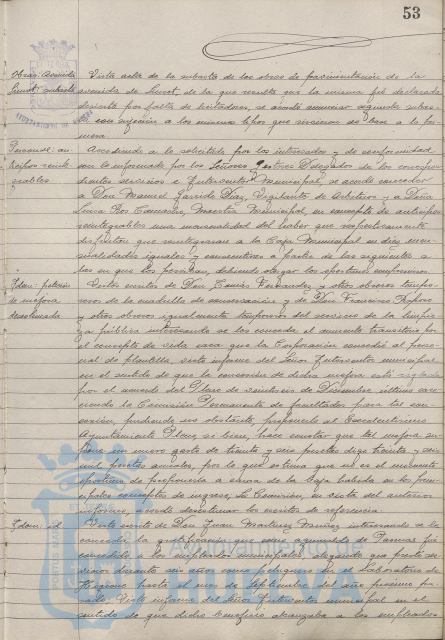 53
Obras. Avenida
Lirust. subasta
Vista acta de la subasta de las obras de pavimentación de la
avenida de , de la que resulta que la misma fué declarada
desierta por falta de licitadores, se acordó anunciar segunda subas-
ta con sujeción a los mismos tipos que sirvieron de base a la pri-
mera.
Personal. an-
ticipos reinte-
grables
Accediendo a lo solicitado por los interesados y de conformidad
con lo informado por los Señores Delegados de los correspon-
dientes servicios e Interventor Municipal, se acordó conceder
a Don Manuel Garrido Díaz, Vigilante de Arbitrios y a Doña
Luisa Ros Camacho, Maestra Municipal, en concepto de anticipo
reintegrable una mensualidad del haber que respectivamente
disfrutan que reintegrarán a la Caja Municipal en diez men-
sualidades iguales y consecutivas a partir de las siguientes a
las en que los perciban, debiendo otorgar los oportunos compromisos.
Idem. petición
de mejora
desestimada
Vistos escritos de Don Tomás Fernández y otros obreros tempo-
reros de la cuadrilla de conservación y de Don Francisco
y otros obreros igualmente temporeros del servicio de la limpie-
za pública interesando se les conceda el aumento transitorio por
el concepto de vida cara que la Corporación concedió al perso-
nal de plantilla, visto informe del Señor Interventor municipal
en el sentido de que la concesión de dicha mejora está reglada
por el acuerdo del Pleno de veintiseis de Diciembre último care-
ciendo la Comisión Permanente de facultades para tal con-
cesión, pudiendo no obstante, proponerlo al Excelentísimo
Ayuntamiento Pleno si bien, hace constar que tal mejora su-
pone un nuevo gasto de treinta y seis pesetas digo treinta y seis
mil pesetas anuales, por lo que estima que no es el momento
oportuno de proponerla a causa de la baja habida en los prin-
cipales conceptos de ingreso, la Comisión, en vista del anterior
informe, acordó desestimar los escritos de referencia.
Idem. id
Visto escrito de Don Juan Martínez Muñoz interesando se le
conceda la gratificación que como aguinaldo de Pascuas fué
concedido a los empleados municipales, alegando que prestó ser-
vicio durante seis años como en el Laboratorio de
Higiene hasta el mes de Septiembre del año próximo pa-
sado. Visto informe del Señor Interventor municipal en el
sentido de que dicho beneficio alcanzaba a los empleados